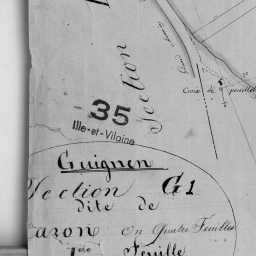 Section
Croix de
35
Ille-et-Vilaine
Guignen
Section G1
dite de
azon en Quatre Feuilles
1ère Feuille